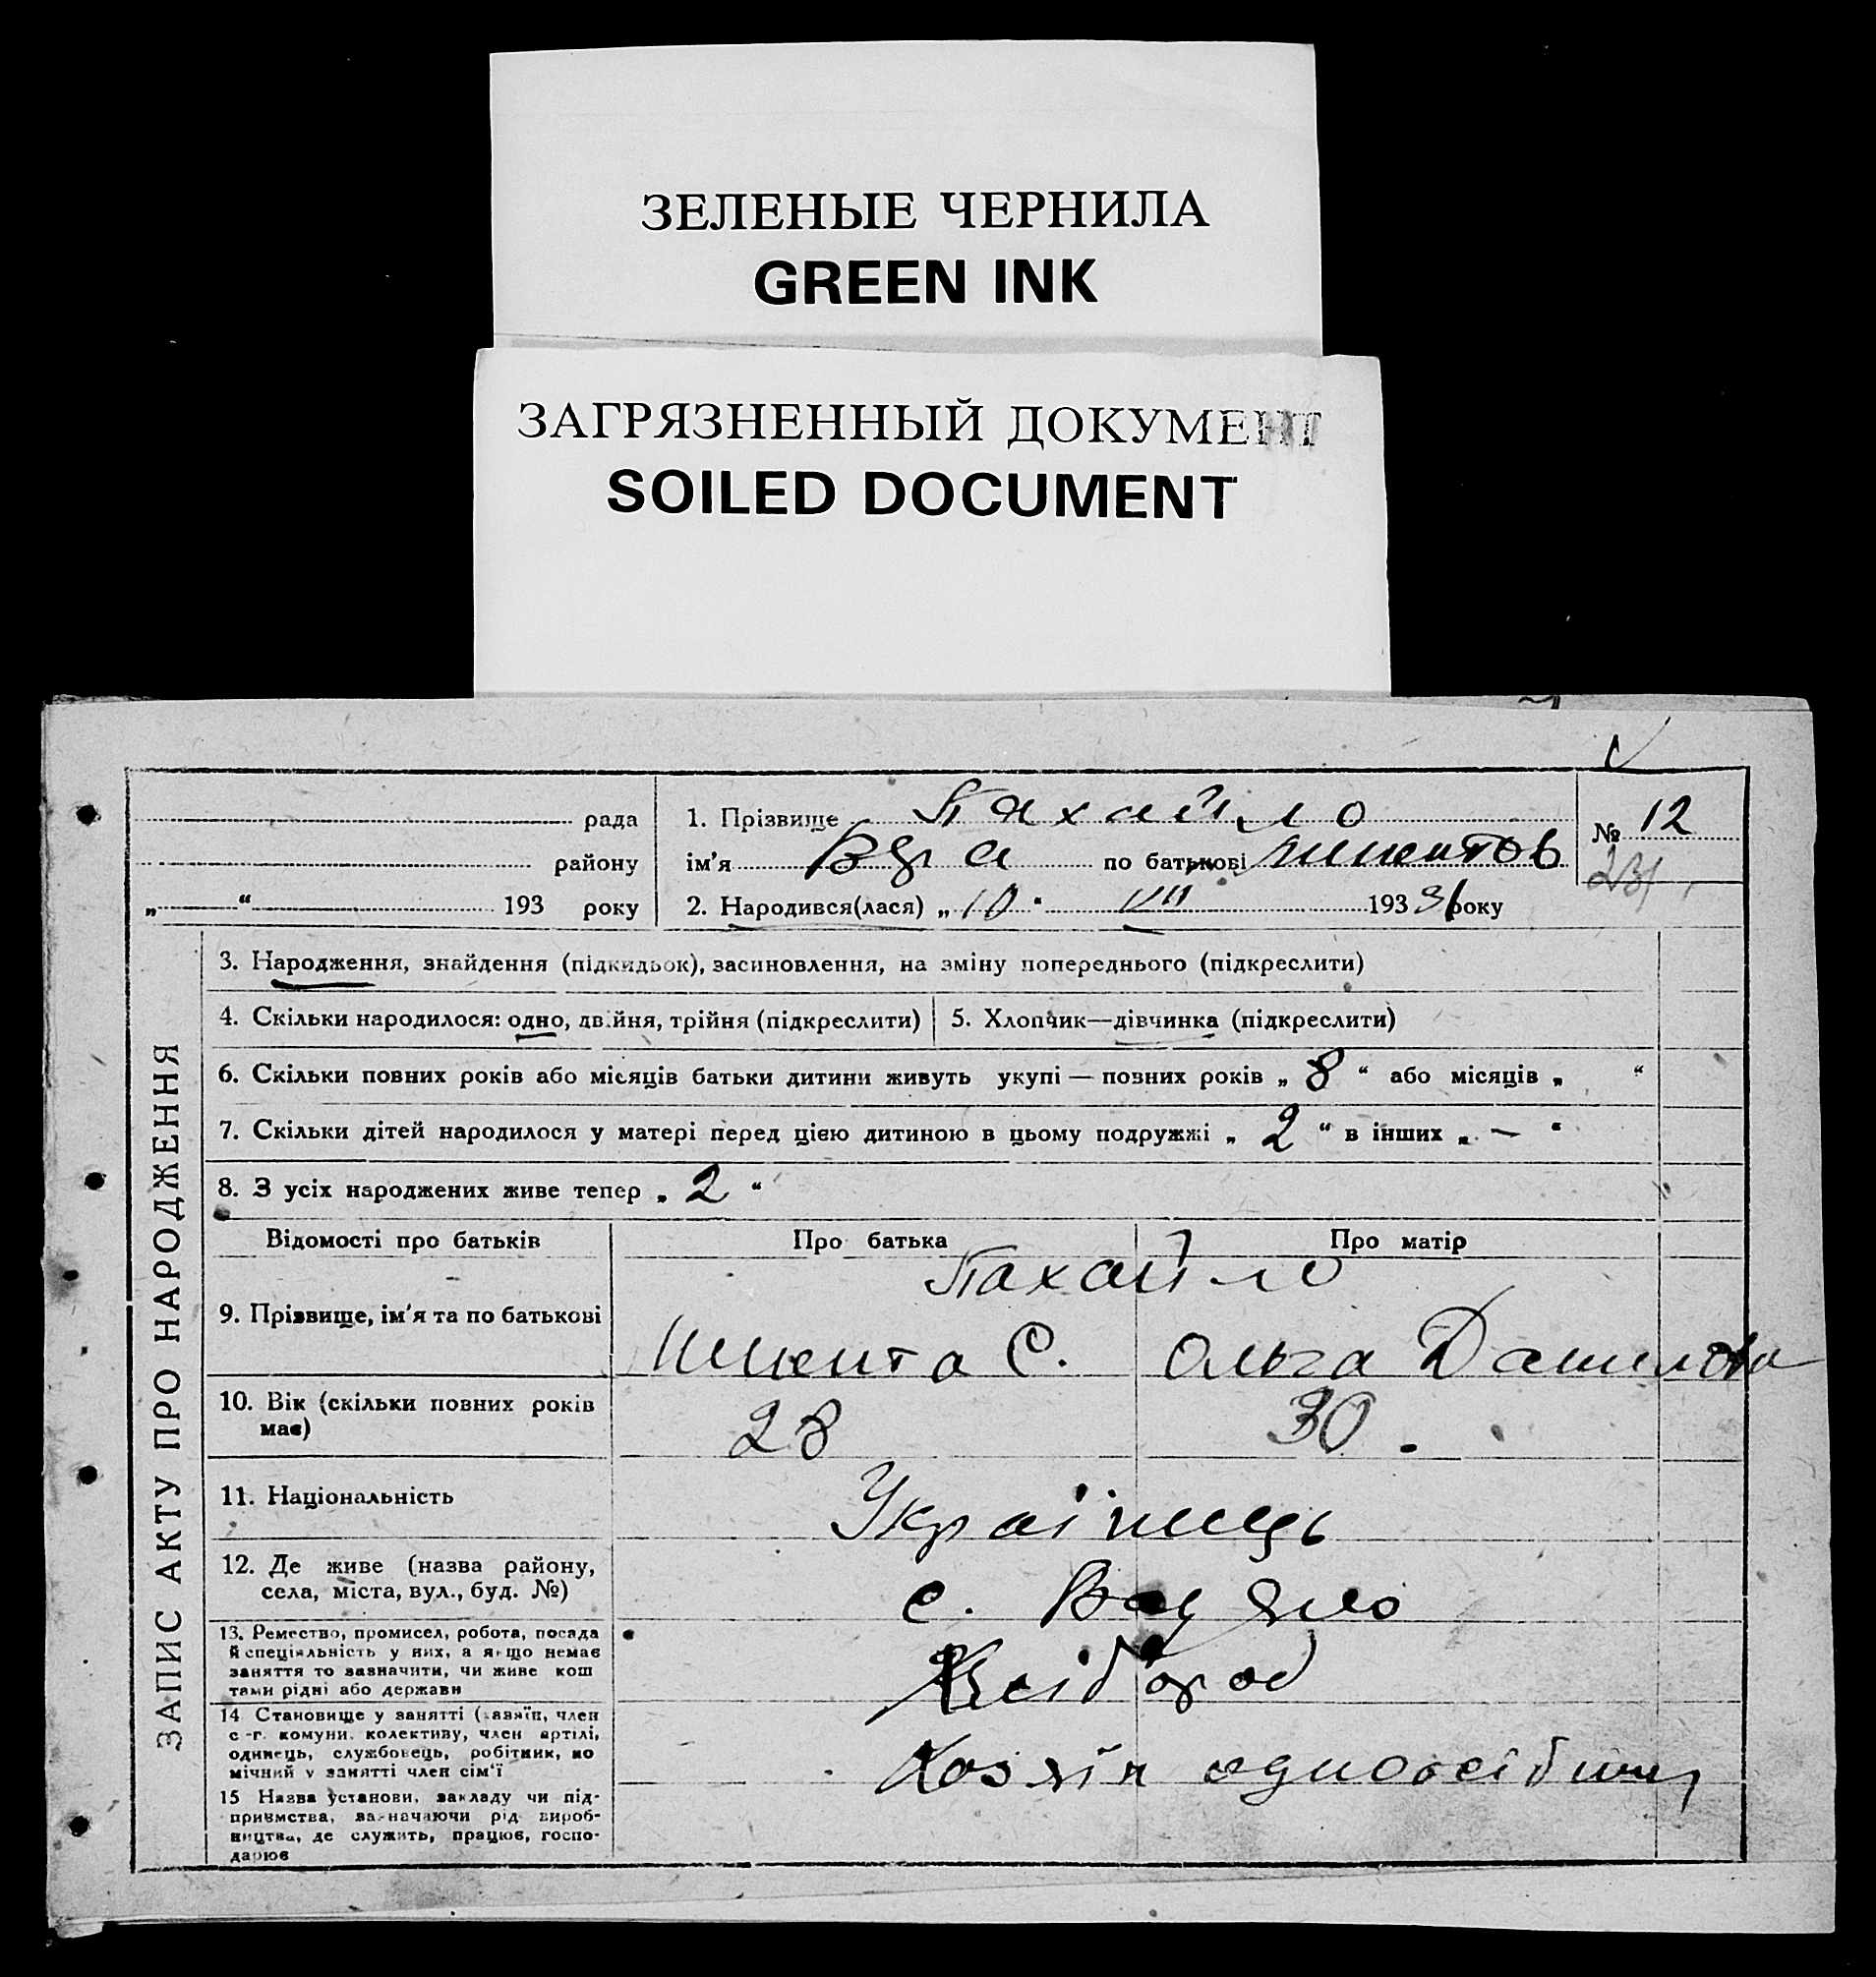 ЗЕЛЕНЫЕ ЧЕРНИЛА
GREEN INK
ЗАГРЯЗНЕННЫЙ ДОКУМЕНТ
SOILED DOCUMENT
рада
району
„ “ 193 року
1. Прізвище Пахайло
ім'я Вєра по батькові
2. Народився(лася) „10“ VII 193 року
№ 12
231
ЗАПИС АКТУ ПРО НАРОДЖЕННЯ
3. Народження, знайдення (підкидьок), засиновлення, на зміну попереднього (підкреслити)
4. Скільки народилося: одно, двійня, трійня (підкреслити) 5. Хлопчик—дівчинка (підкреслити)
6. Скільки повних років або місяців батьки дитини живуть укупі — повних років „ 8 “ або місяців „ “
7. Скільки дітей народилося у матері перед цією дитиною в цьому подружжі „ 2 “ в інших „ — “
8. З усіх народжених живе тепер „ 2 “
Відомості про батьків Про батька Про матір
9. Прізвище, ім'я та по батькові
Пахайло
С. Ольга Данилова
10. Вік (скільки повних років має)
28 30.
11. Національність
Українець
12. Де живе (назва району, села, міста, вул., буд. №)
с. Водяно
13. Ремество, промисел, робота, посада
й спеціяльність у них, а якщо немає
заняття то зазначити, чи живе кош
тами рідні або держави
14 Становище у занятті (хазяїн, член
с-г. комуни, колективу, член артілі,
одинець, службовець, робітник, по
мічний у занятті член сім'ї
Хозяїн
15 Назва установи, закладу чи під-
приємства, зазначаючи рід вироб-
ництва, де служить, працює, госпо-
дарює